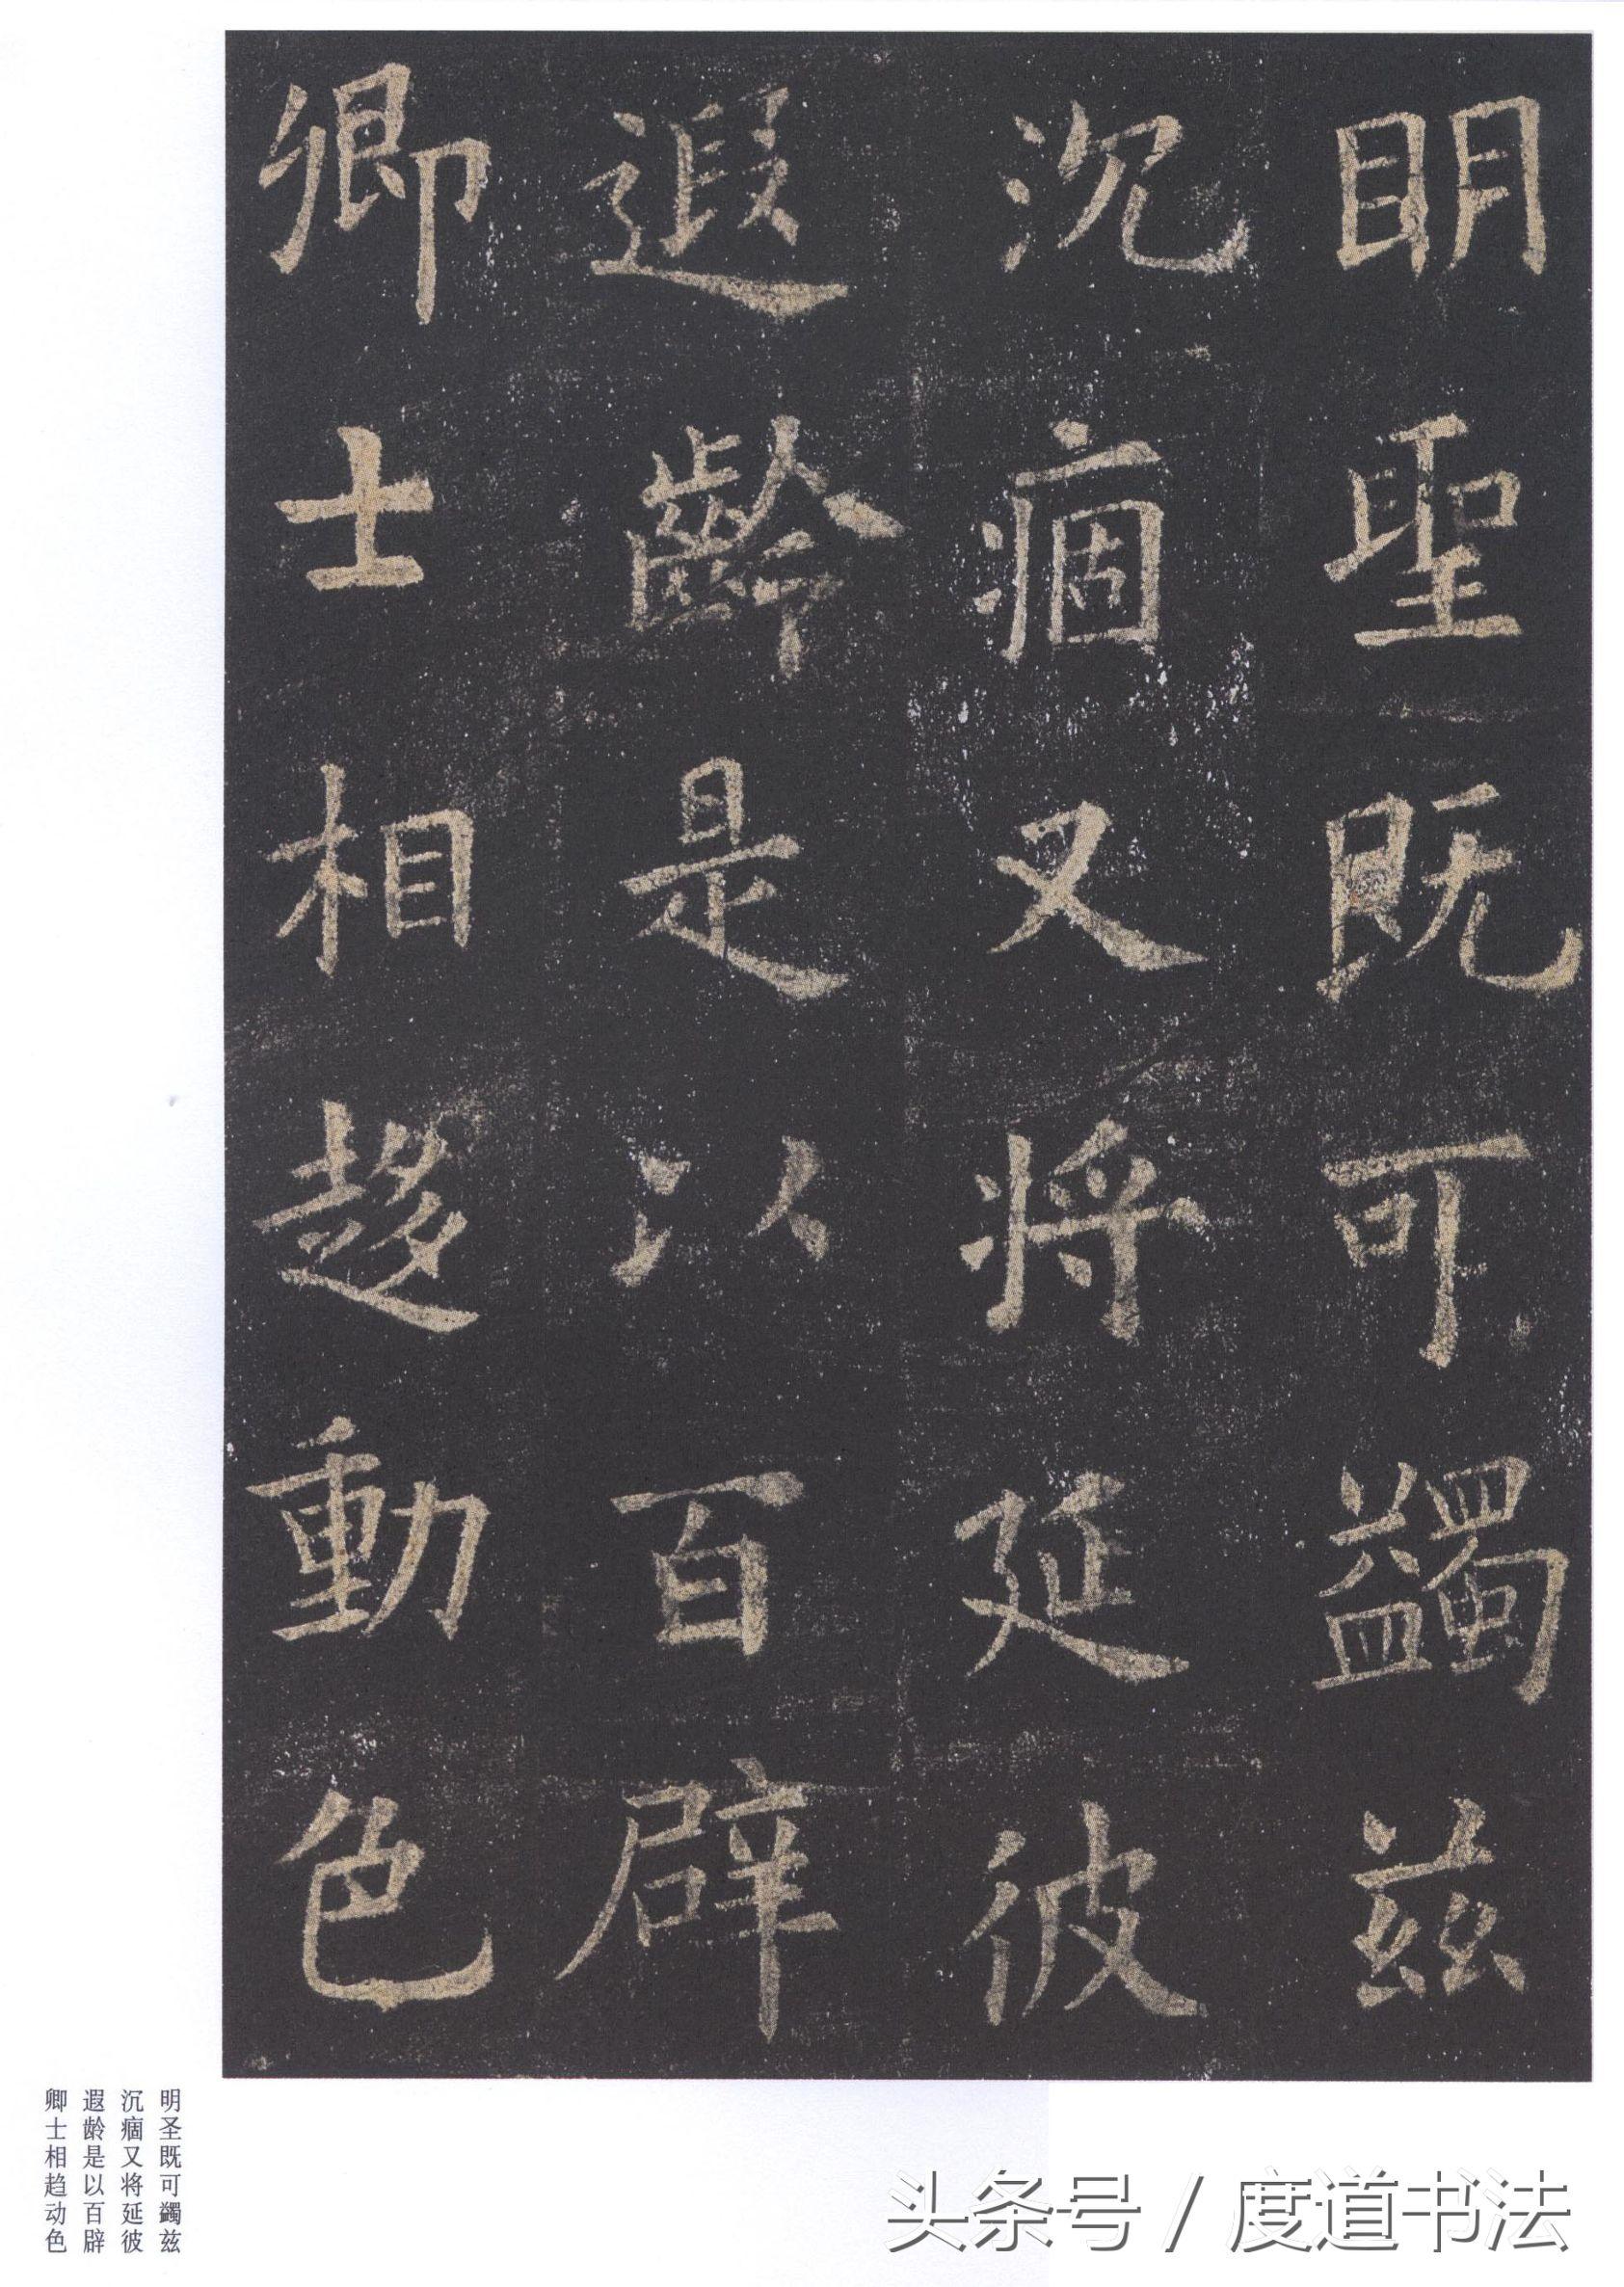 明聖既可蠲茲
沉痼又将延彼
遐齡是以百辟
卿士相趍動色
明圣既可蠲兹
沉痼又将延彼
遐龄是以百辟
卿士相趋动色
头条号 / 度道书法